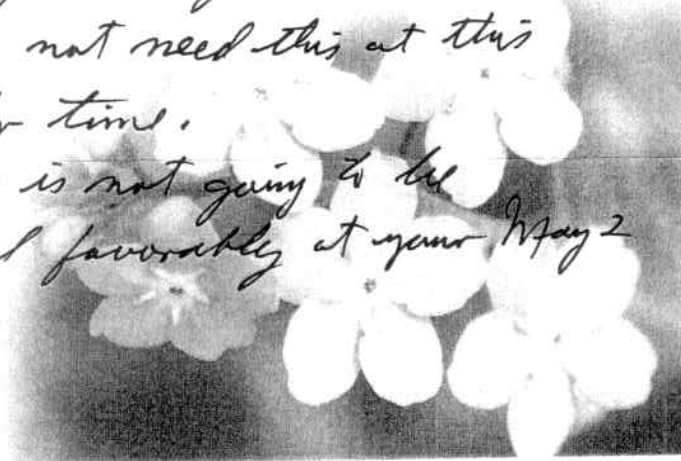 not need this at this
time.
is not going to be
favorably at your May 2